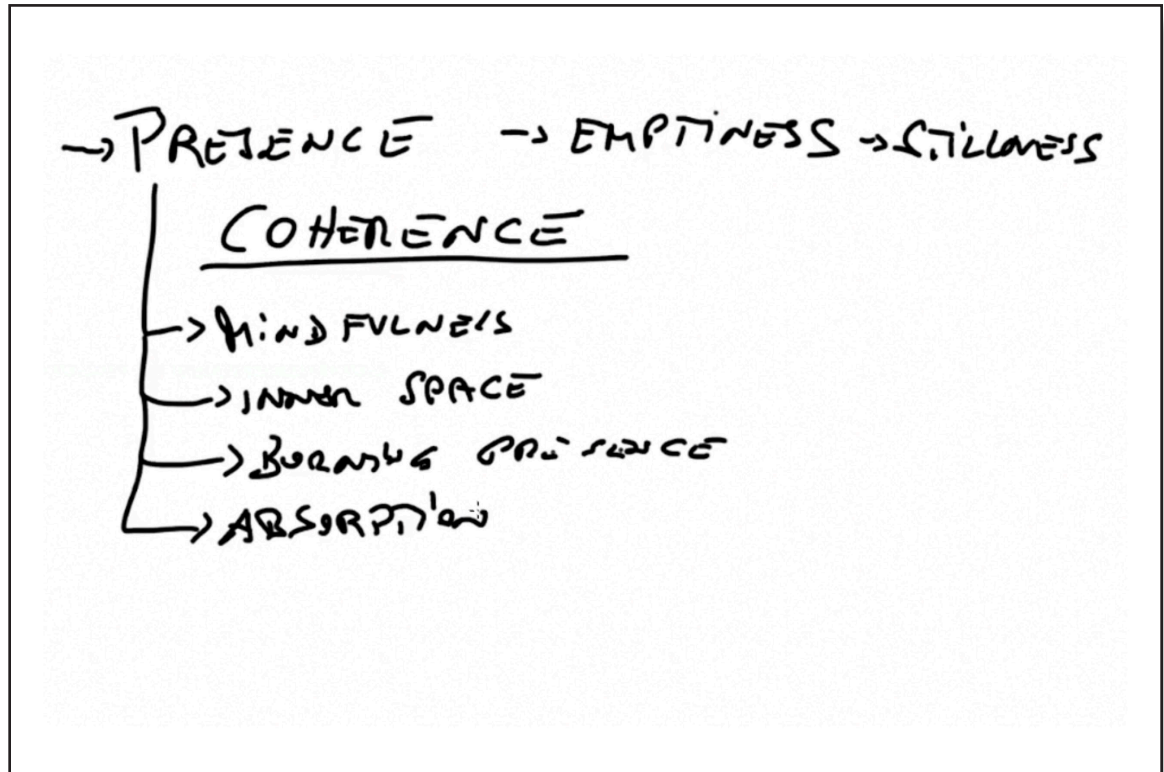 → PRESENCE → EMPTINESS → STILLNESS
COHERENCE
→ MINDFULNESS
→ INNER SPACE
→ BURNING PRESENCE
→ ABSORPTION